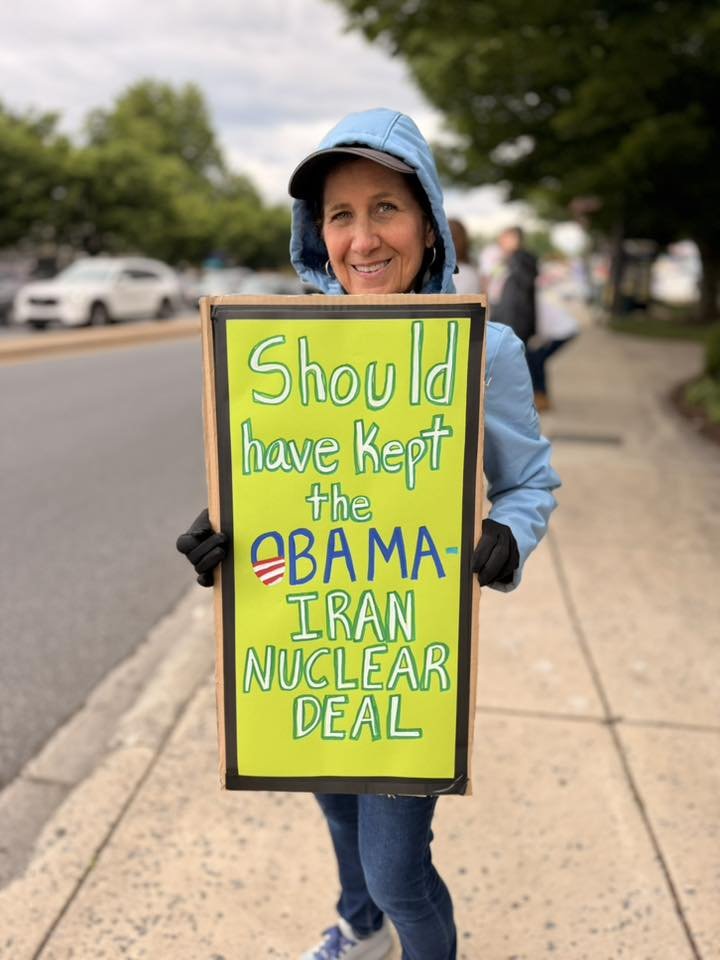 Should
have Kept
the
OBAMA-
IRAN
NUCLEAR
DEAL